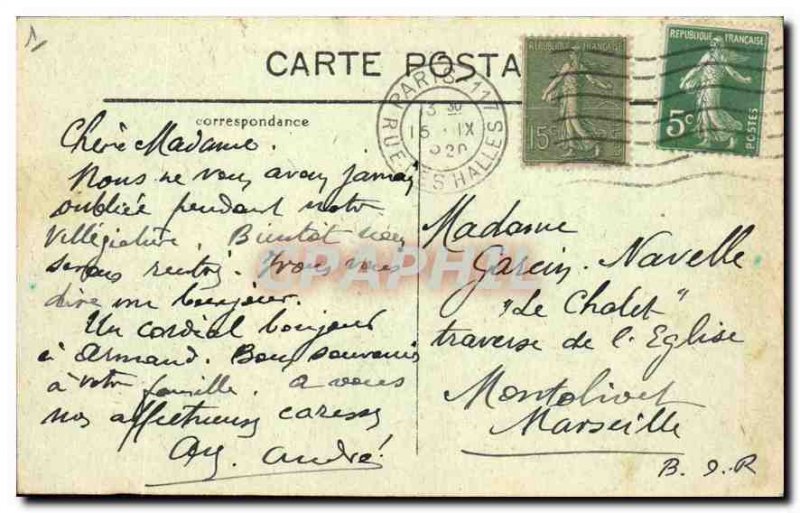 1
CARTE POSTA
correspondance
PARIS 117
13 30
15 IX
20
RUE DES HALLES
REPUBLIQUE FRANÇAISE
15c
REPUBLIQUE FRANÇAISE
5c
POSTES
Chère Madame.
Nous ne vous avons jamais
oubliée pendant notre
villégiature. Bientôt nous
serons rentrés. Irons vous
dire un bonjour.
Un cordial bonjour
à Armand. Bons souvenirs
à votre famille. a vous
nos affectueuses caresses
André
Madame
Garcin. Navelle
"Le Chalet"
traverse de l'Eglise
Montolivet
Marseille
B. d. R
CPAPHIL